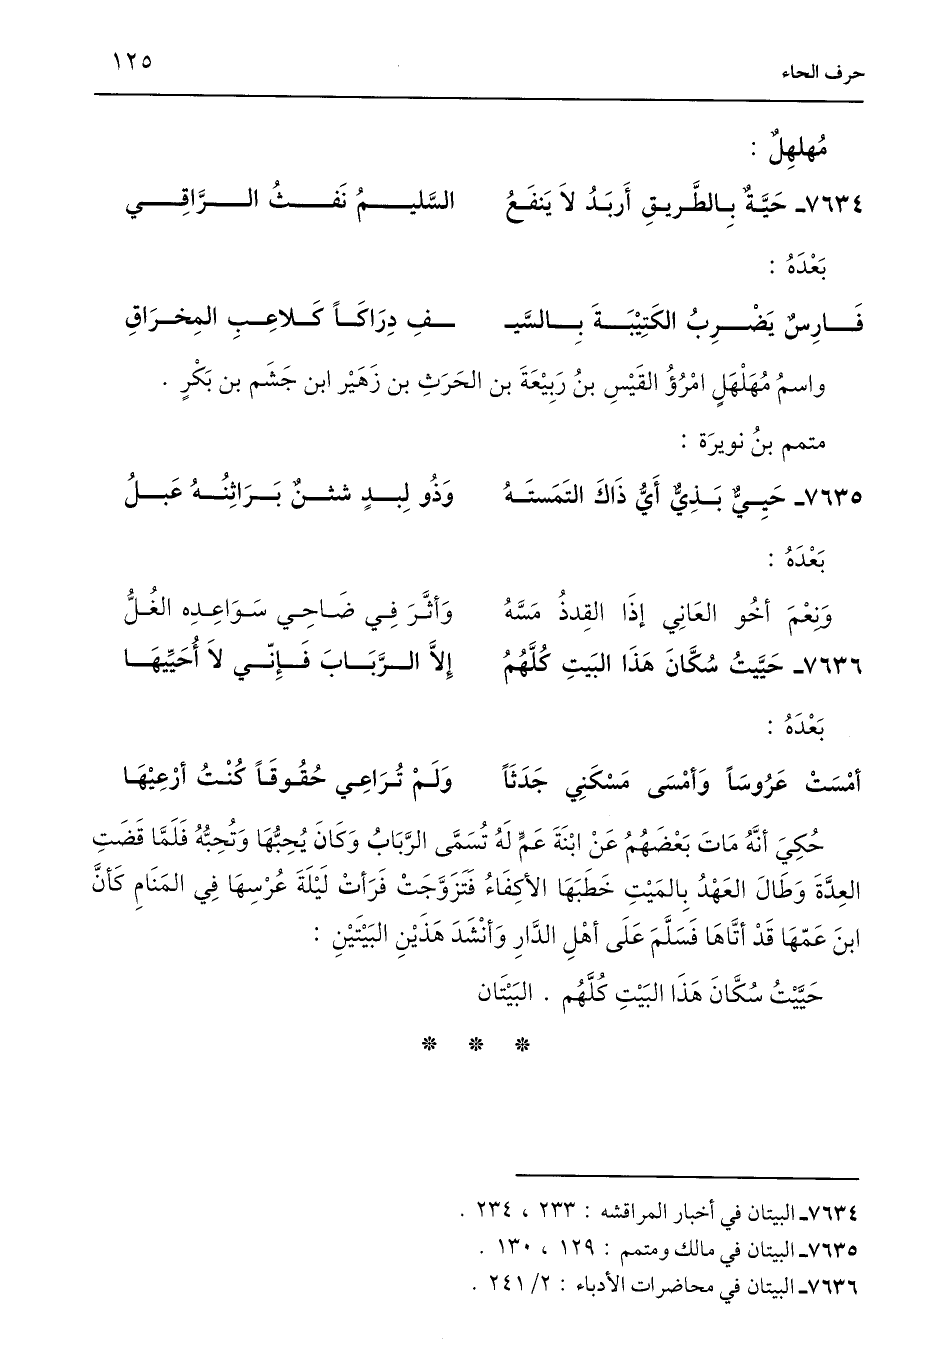 حرف الحاء ١٢٥
مُهلهِلٌ :
٧٦٣٤ـ حَيَّةٌ بِالطَّريقِ أَربَدُ لاَ يَنفَعُ السَّليمُ نَفثُ الرَّاقِي
بَعْدَهُ :
فَارِسٌ يَضْرِبُ الكَتِيْبَةَ بِالسَّيـ ـفِ دِرَاكَاً كَلاعِبِ المِخرَاقِ
واسمُ مُهَلْهَلٍ امْرُؤُ القَيْسِ بنُ رَبِيْعَةَ بن الحَرَثِ بن زَهَيْر ابن جَشَم بن بَكْرٍ .
متمم بنُ نويرَة :
٧٦٣٥ـ حَيِيٌّ بَذِيٌّ أَيُّ ذَاكَ التَمَستَهُ وَذُو لِبدٍ شثنٌ بَرَاثِنُهُ عَبلُ
بَعْدَهُ :
وَنِعْمَ أخُو العَانِي إذَا القِدذُ مَسَّهُ وَأثَّرَ فِي ضَاحِي سَوَاعِدِه الغُلُّ
٧٦٣٦ـ حَيَّيتُ سُكَّانَ هَذَا البَيتِ كُلَّهُمُ إلاَّ الرَّبَابَ فَإنِّي لاَ أُحَيِّيهَا
بَعْدَهُ :
أمْسَتْ عَرُوسَاً وَأمْسَى مَسْكَنِي جَدَثَاً وَلَمْ تُرَاعِي حُقُوقَاً كُنْتُ أرْعِيْهَا
حُكِيَ أنَّهُ مَاتَ بَعْضَهُمُ عَنْ ابْنَةَ عَمٍّ لَهُ تُسَمَّى الرَّبَابُ وَكَانَ يُحِبُّهَا وَتُحِبُّهُ فَلَمَّا قَضَتِ
العِدَّةَ وَطَالَ العَهْدُ بِالمَيْتِ خَطَبَهَا الأكِفَاءُ فَتَزَوَّجَتْ فَرَأتْ لَيْلَةَ عُرْسِهَا فِي المَنَامِ كَأنَّ
ابنَ عَمِّهَا قَدْ أتَّاهَا فَسَلَّمَ عَلَى أهْلِ الدَّارِ وَأنْشَدَ هَذَيْنِ البَيْتَيْنِ :
حَيَّيْتُ سُكَّانَ هَذَا البَيْتِ كُلَّهُم . البَيْتَان
* * *
٧٦٣٤ـ البيتان في أخبار المراقشه : ٢٣٣ ، ٢٣٤ .
٧٦٣٥ـ البيتان في مالك ومتمم : ١٢٩ ، ١٣٠ .
٧٦٣٦ـ البيتان في محاضرات الأدباء : ٢/ ٢٤١ .